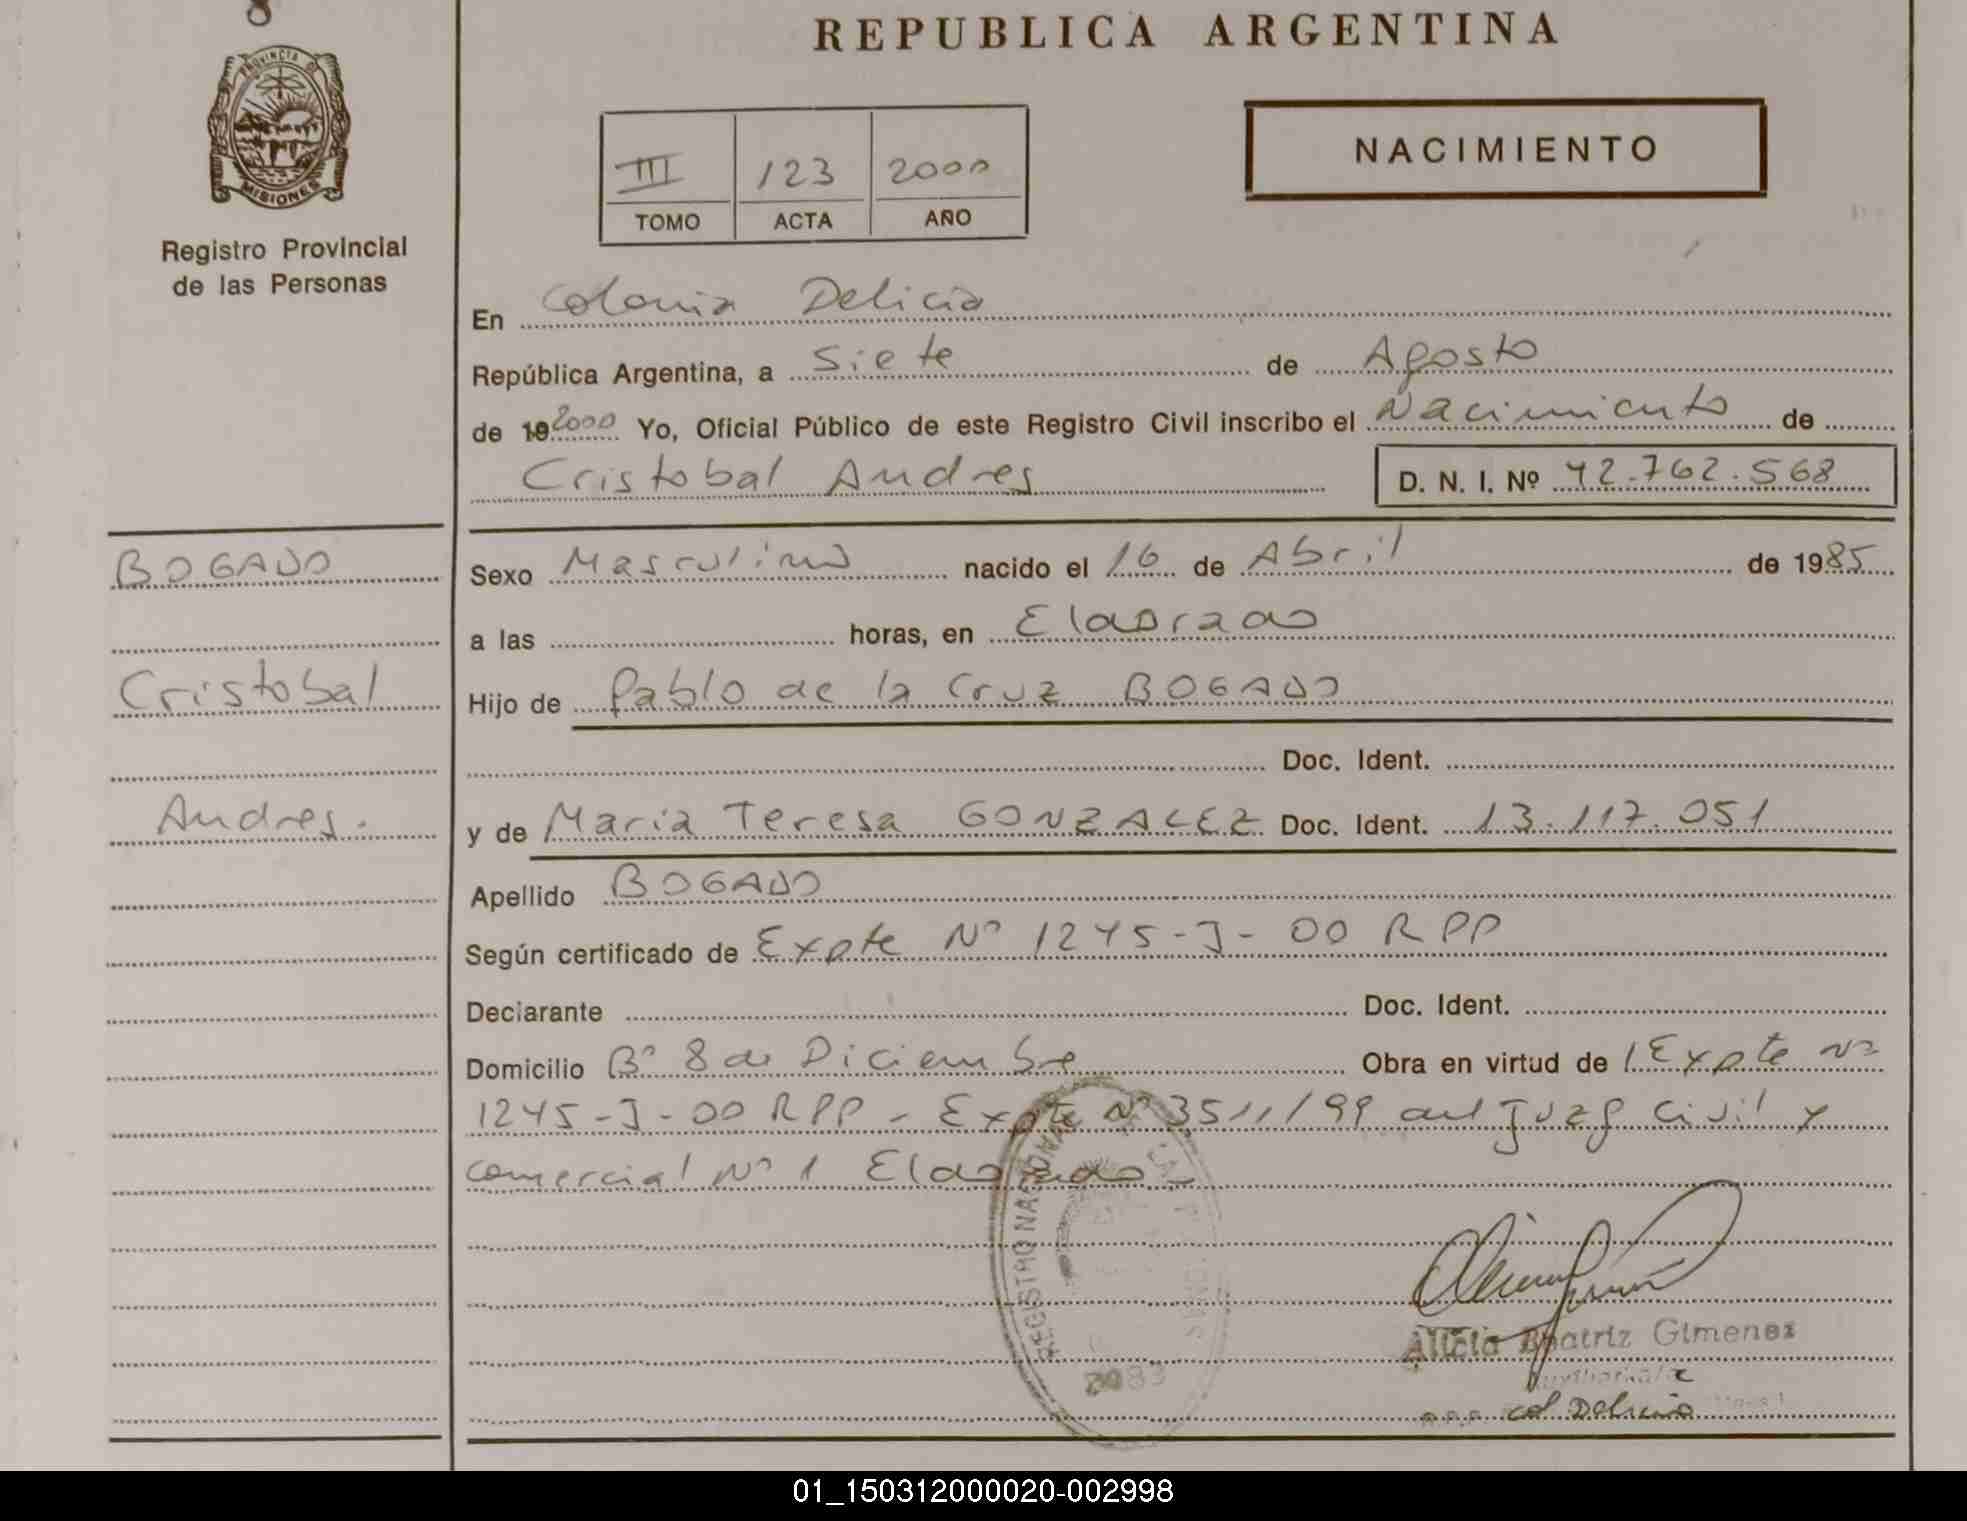 8
REPUBLICA ARGENTINA
PROVINCIA DE
MISIONES
Registro Provincial
de las Personas
III 123 2000
TOMO ACTA AÑO
NACIMIENTO
En Colonia Delicia
República Argentina, a Siete de Agosto
de 19 2000 Yo, Oficial Público de este Registro Civil inscribo el Nacimiento de
Cristobal Andres D. N. I. Nº 42.762.568
BOGADO
Cristobal
Andres.
Sexo Masculino nacido el 16 de Abril de 1985
a las horas, en Eldorado
Hijo de Pablo de la Cruz BOGADO
Doc. Ident.
y de Maria Teresa GONZALEZ Doc. Ident. 13.117.051
Apellido BOGADO
Según certificado de Expte Nº 1245-J-00 RPP
Declarante Doc. Ident.
Domicilio Bº 8 de Diciembre Obra en virtud de Expte Nº
1245-J-00 RPP - Expte Nº 3511/99 del Juzg Civil y
comercial Nº 1 Eldorado
REGISTRO NACIONAL DE LAS PERSONAS
Alicia Beatriz Gimenez
R.P.P. Col Delicia
01_150312000020-002998